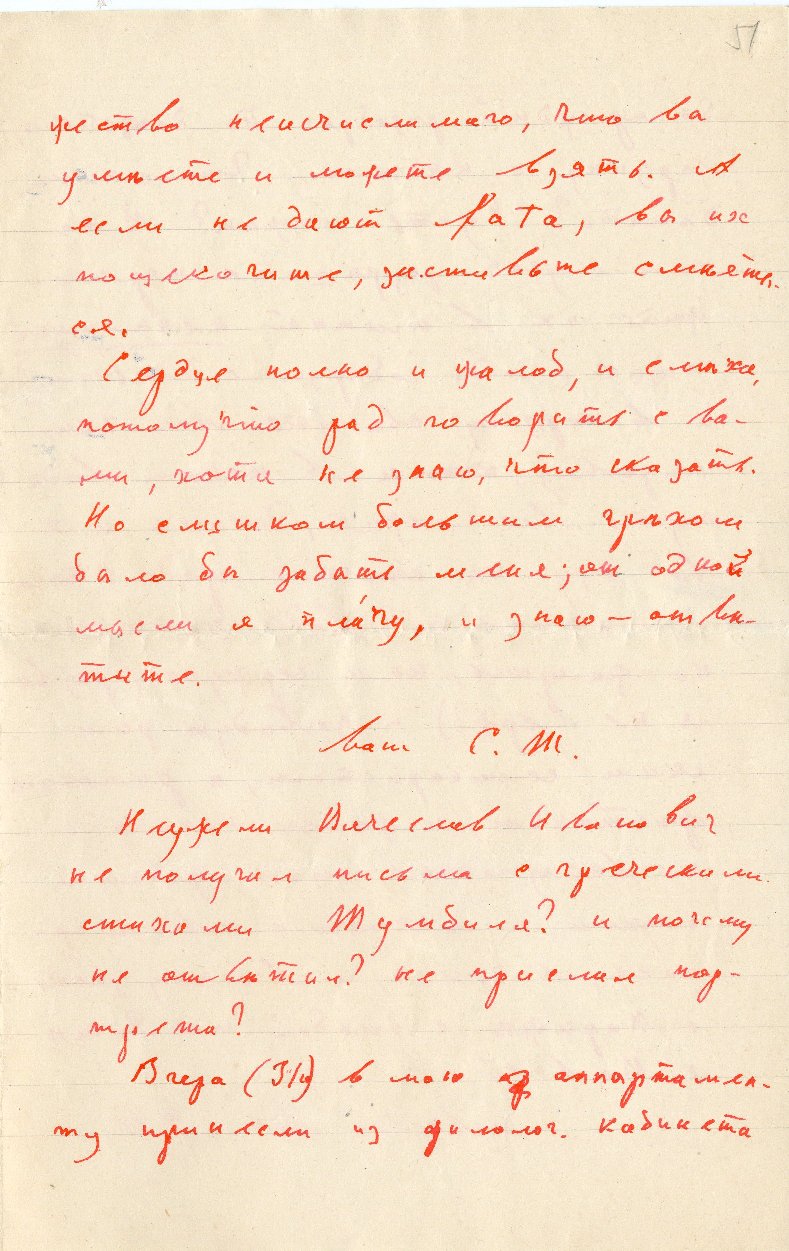 51
жество неисчислимаго, что вы
умѣете и можете взять. А
если не дают Fata, вы их
пощекочите, заставьте смѣять-
ся.
Сердце полно и жалоб, и смѣха,
потому что рад говорить с ва-
ми, хотя не знаю, что сказать.
Но слишком большим грѣхом
было бы забыть меня; от одной
мысли я пла́чу, и знаю – отвѣ-
тите.
ваш С. Т.
Неужели Вячеслав Иванович
не получил письма с греческими
стихами Тумбиля? и почему
не отвѣтил? не прислал пор-
трета?
Вчера (3/II) в мою аппартамен-
ту принесли из филолог. кабинета